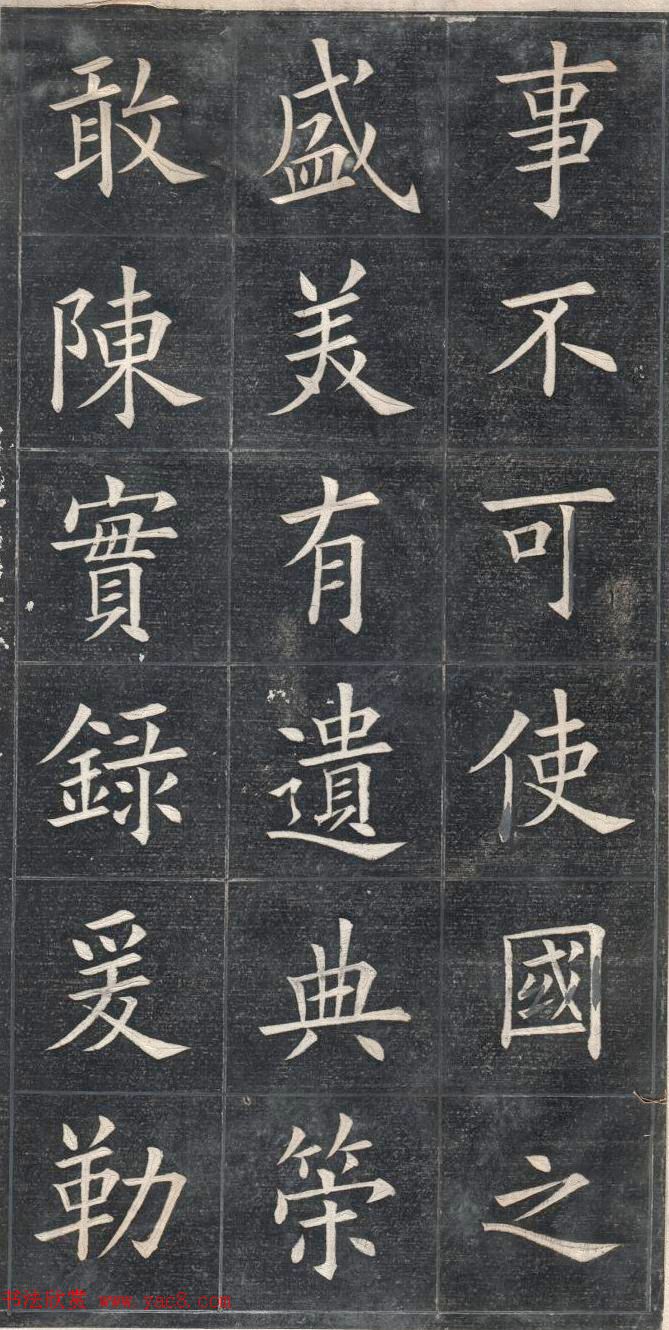 事不可使國之
盛美有遺典䇿
敢陳實錄爰勒
书法欣赏 www.yac8.com